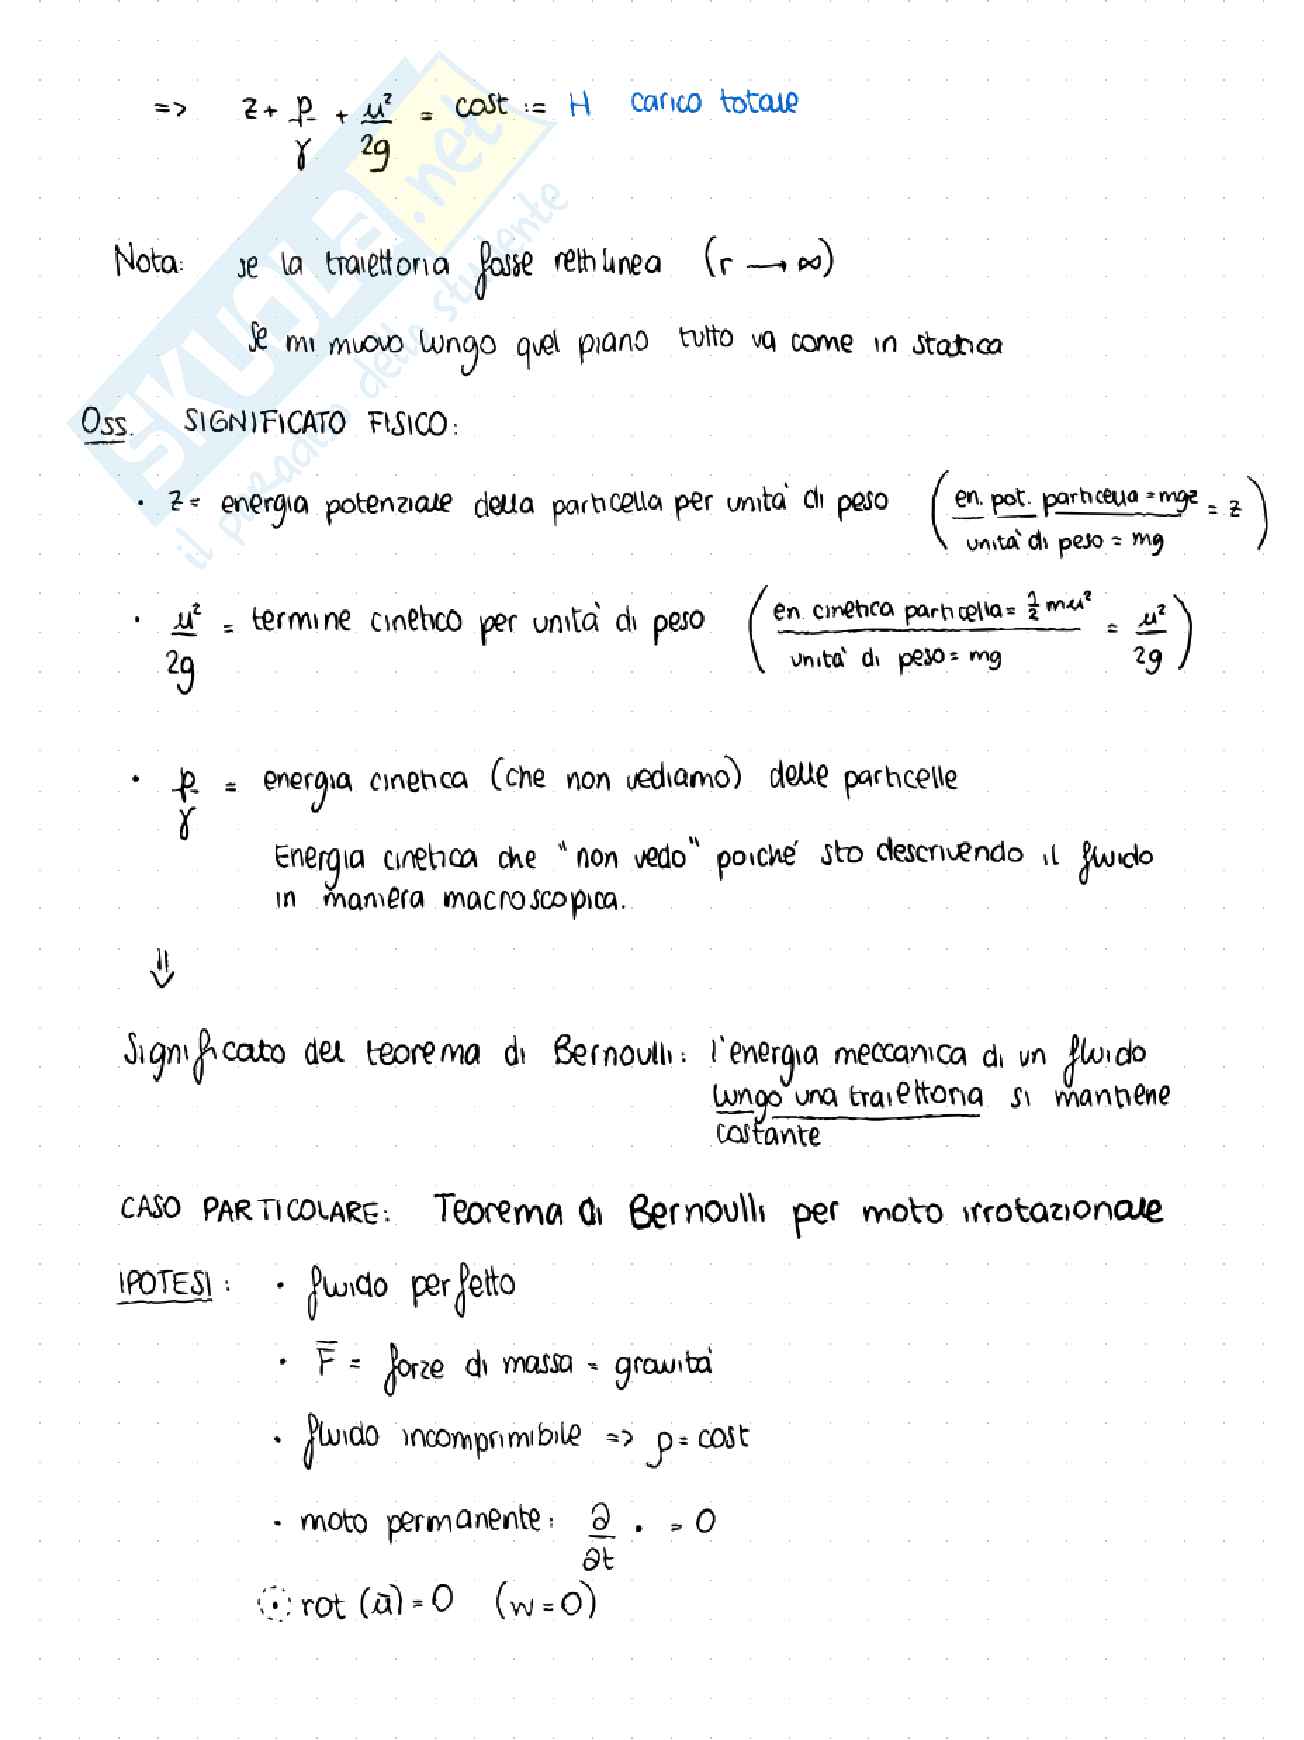 => z + p/γ + u²/2g = cost := H carico totale
Nota: se la traiettoria fosse rettilinea (r → ∞)
se mi muovo lungo quel piano tutto va come in statica
Oss. SIGNIFICATO FISICO:
· z = energia potenziale della particella per unità di peso (en. pot. particella = mgz / unità di peso = mg = z)
· u²/2g = termine cinetico per unità di peso (en. cinetica particella = 1/2 mu² / unità di peso = mg = u²/2g)
· p/γ = energia cinetica (che non vediamo) delle particelle
Energia cinetica che "non vedo" poiché sto descrivendo il fluido
in maniera macroscopica.
⇓
Significato del teorema di Bernoulli: l'energia meccanica di un fluido
lungo una traiettoria si mantiene
costante
CASO PARTICOLARE: Teorema di Bernoulli per moto irrotazionale
IPOTESI: · fluido perfetto
· F̅ = forze di massa = gravità
· fluido incomprimibile => ρ = cost
· moto permanente: ∂/∂t · = 0
· rot (u̅) = 0 (w = 0)
SKUOLA.net
il paradiso dello studente